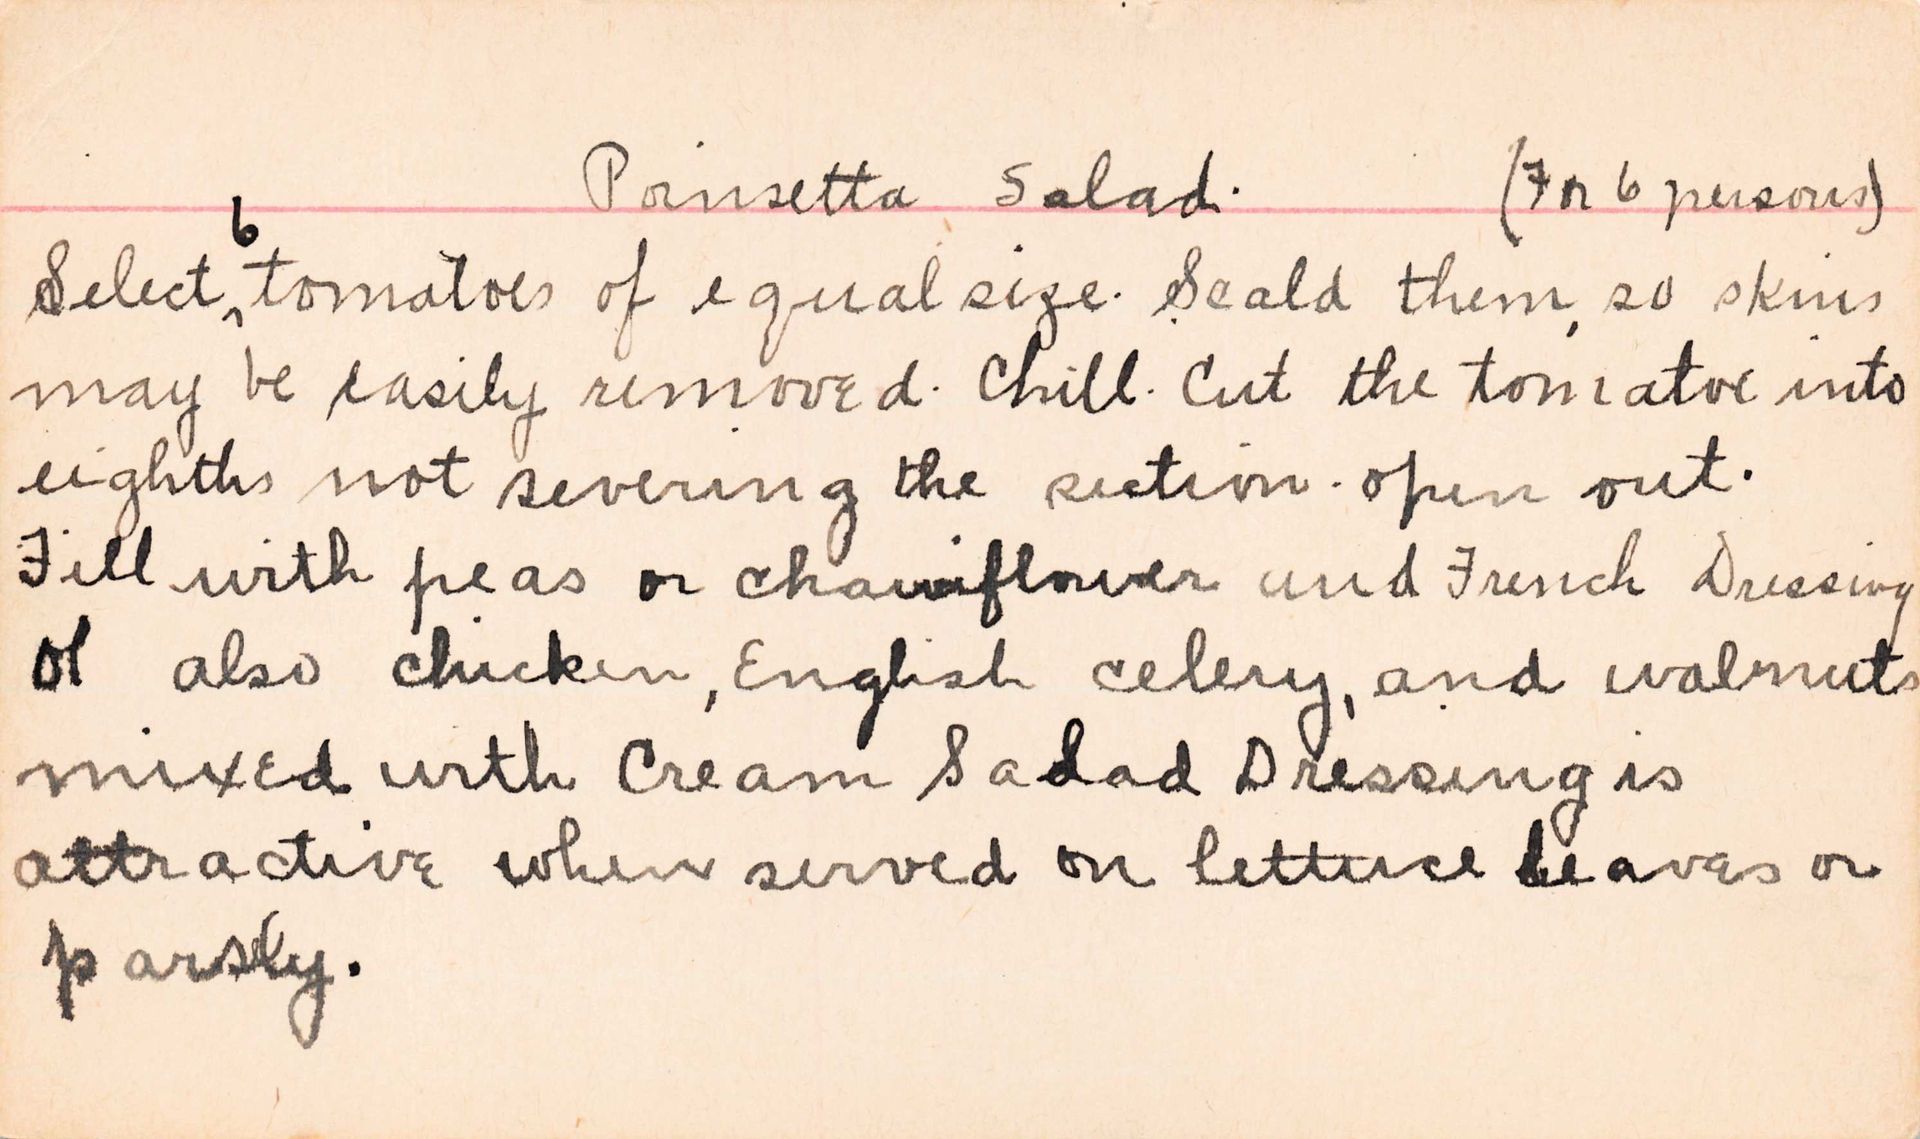 Poinsetta Salad. (For 6 persons)
Select 6 tomatoes of equal size. Scald them, so skins
may be easily removed. Chill. Cut the tomatoe into
eighths not severing the section. open out.
Fill with peas or chauiflower and French Dressing
or also chicken, English celery, and walnuts
mixed with Cream Salad Dressing is
attractive when served on lettuce leaves or
parsley.